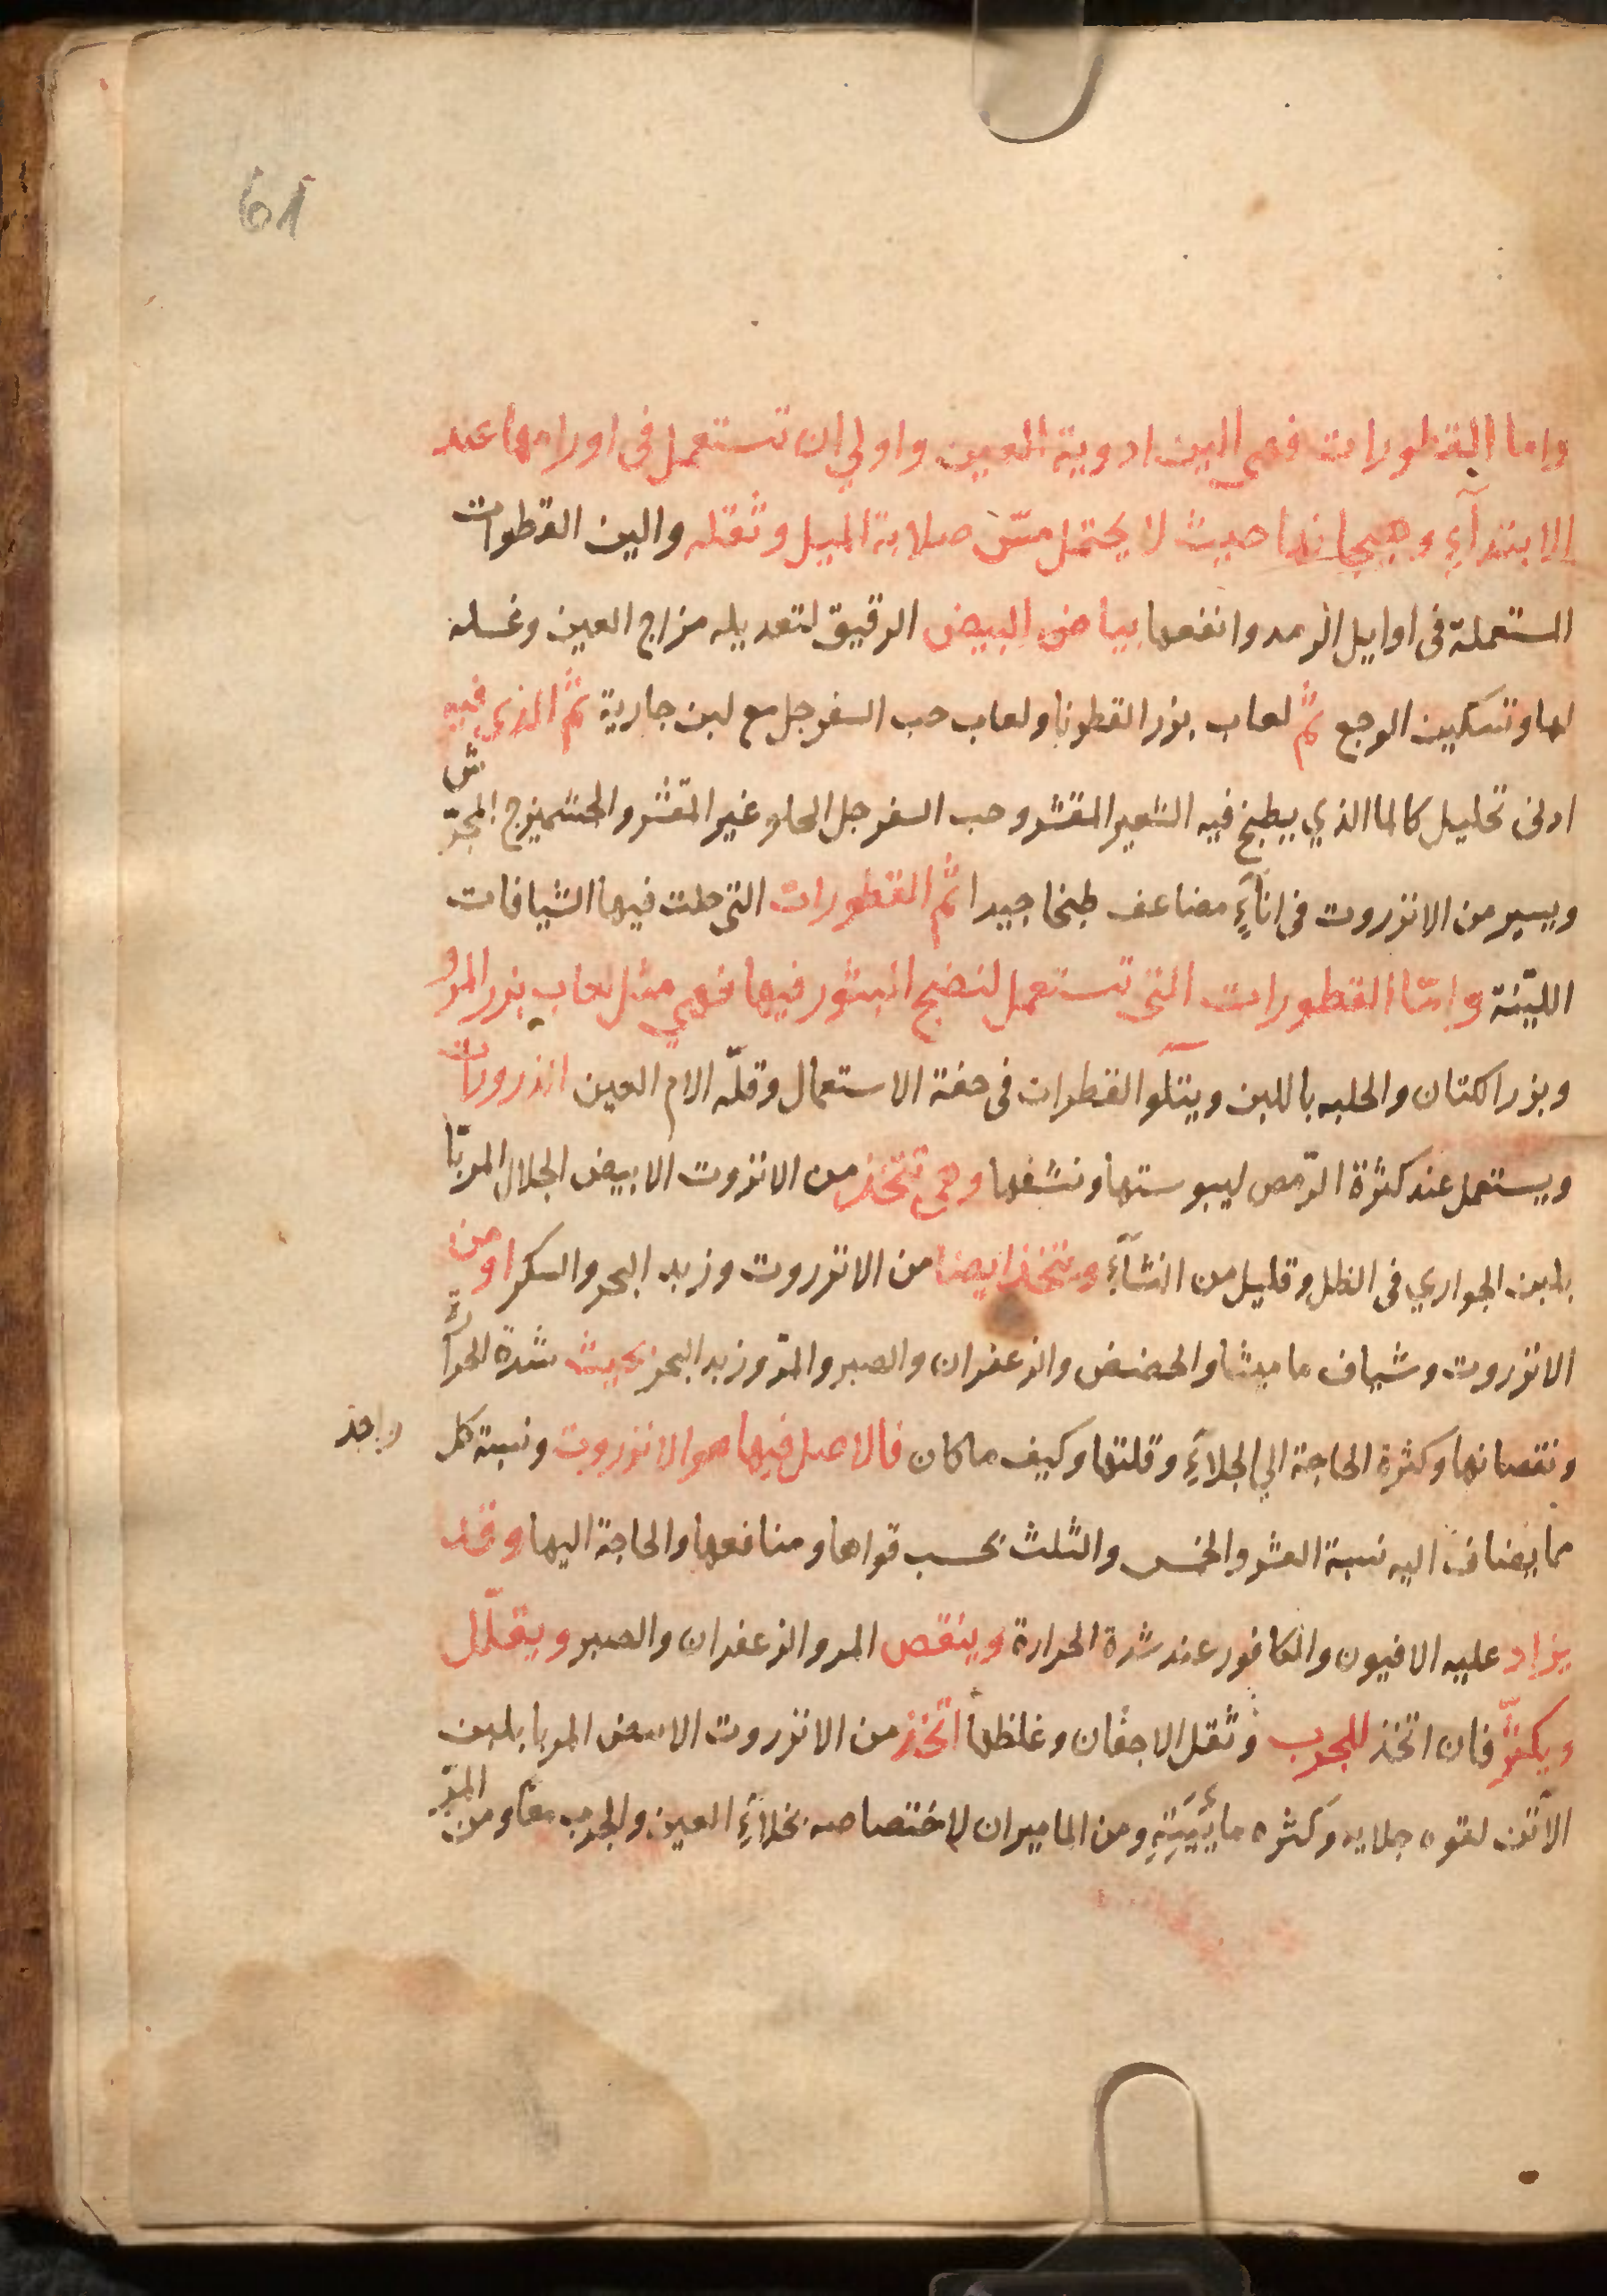 61
واما القطورات فهي الين ادوية العين واولي ان تستعمل في اورامها عند
الابتدآءِ وهيجانها حيث لا يحتمل مسّ صلابة الميل وثقله والين القطورات
المستعملة فى اوايل الرمد وانفعها بياض البيض الرقيق لتعديله مزاج العين وغسله
لها وتسكين الوجع ثمّ لعاب بزر القطونا ولعاب حب السفرجل مع لبن جارية ثمّ الذي فيه
ادنى تحليل كالما الذي يطبخ فيه الشعير المقشر وحب السفرجل الحلو غير المقشر والجشميزج المجوّش
ويسير من الانزروت فى انآءٍ مضاعف طبخا جيدا ثمّ القطورات التى حلت فيها الشيافات
الليّنة وامّا القطورات التى تستعمل لنضج البثور فيها فهي مثل لعاب بزر المرو
وبزر الكتان والحلبه باللبن ويتلو القطرات فى خفة الاستعمال وقلّه الام العين الذرورات
ويستعمل عند كثرة الرّمص ليبوستها ونشفها وهى تتخذ من الانزروت الابيض الجلال المربّا
بلبن الجواري فى الظل وقليل من النشآءِ وتتخذ ايضا من الانزروت وزبد البحر والسكر او من
الانزروت وشياف ماميثا والحضض والزعفران والصبر والمرّ وزبد البحر بحيث شدّة الحرآرة
ونقصانها وكثرة الحاجة الي الجلآءِ وقلتها وكيف ما كان فالاصل فيها هو الانزروت ونسبة كل واحد
مما يضاف اليه نسبة العشر والخمس والثلث بحسب قواها ومنافعها والحاجة اليها وقد
يزاد عليه الافيون والكافور عند شدة الحرارة وينقص المر والزعفران والصبر ويقلّل
ويكثّر فان اتخذ للجرب وثقل الاجفان وغلظها اتخذ من الانزروت الابيض المربا بلبن
الاتن لقوه جلايه وكثره مايّيَتِهِ ومن الماميران لاختصاصه بجلآءِ العين والجرب معًا ومن المرّ